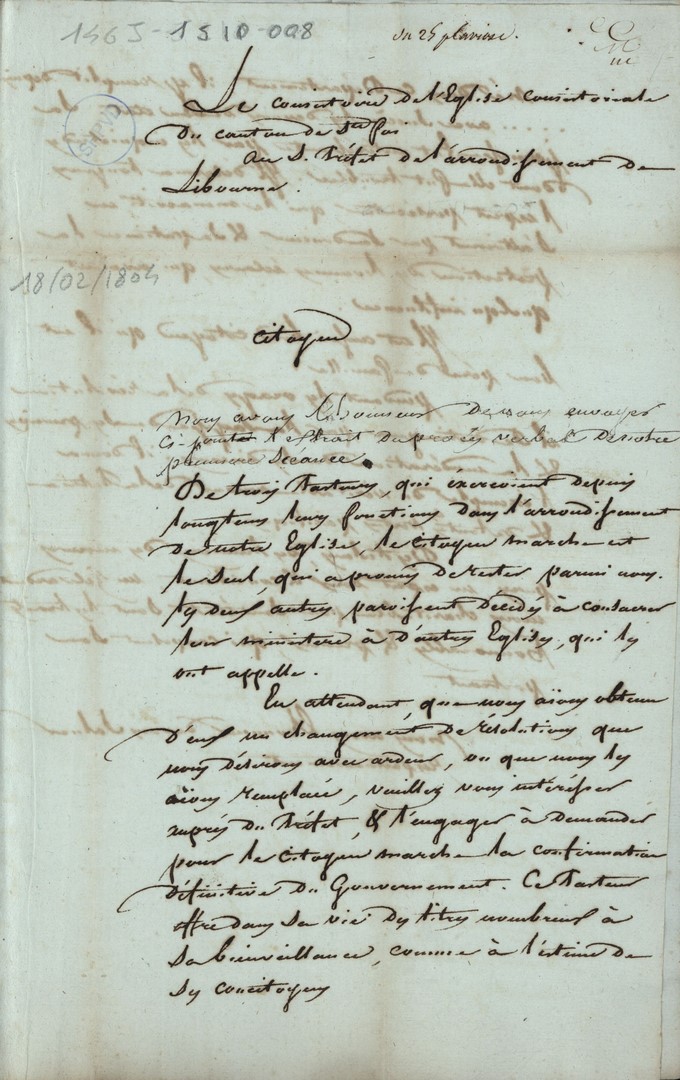 1463-1510-008
du 28 pluviose.
Le consistoire de l'Eglise consistoriale
Du canton de Ste foi
au S. Préfet de l'arrondissement de
Libourne.
SHPVD
18/02/1804
Citoyen
Nous avons l'honneur De vous envoyer
ci-jointe l'extrait du procès verbal De notre
premiere Séance.
De trois Pasteurs, qui éxercoient depuis
longtems leurs fonctions Dans l'arrondissement
De notre Eglise, le citoyen marche est
le seul, qui a promis De rester parmi nous.
les Deux autres paroissent décidés à consacrer
leur ministere à D'autres Eglises, qui les
ont appellé.
En attendant, que nous aïons obtenu
D'eux un changement De résolutions que
nous Désirons avec ardeur, ou que nous les
aïons remplacé, veuillez vous intéresser
auprès Du Préfet, & l'engager à Demander
pour le citoyen marche la confirmation
Définitive Du Gouvernement. Ce Pasteur
offre dans sa vie Des titres nombreux à
sa bienveillance, comme à l'estime De
ses concitoyens